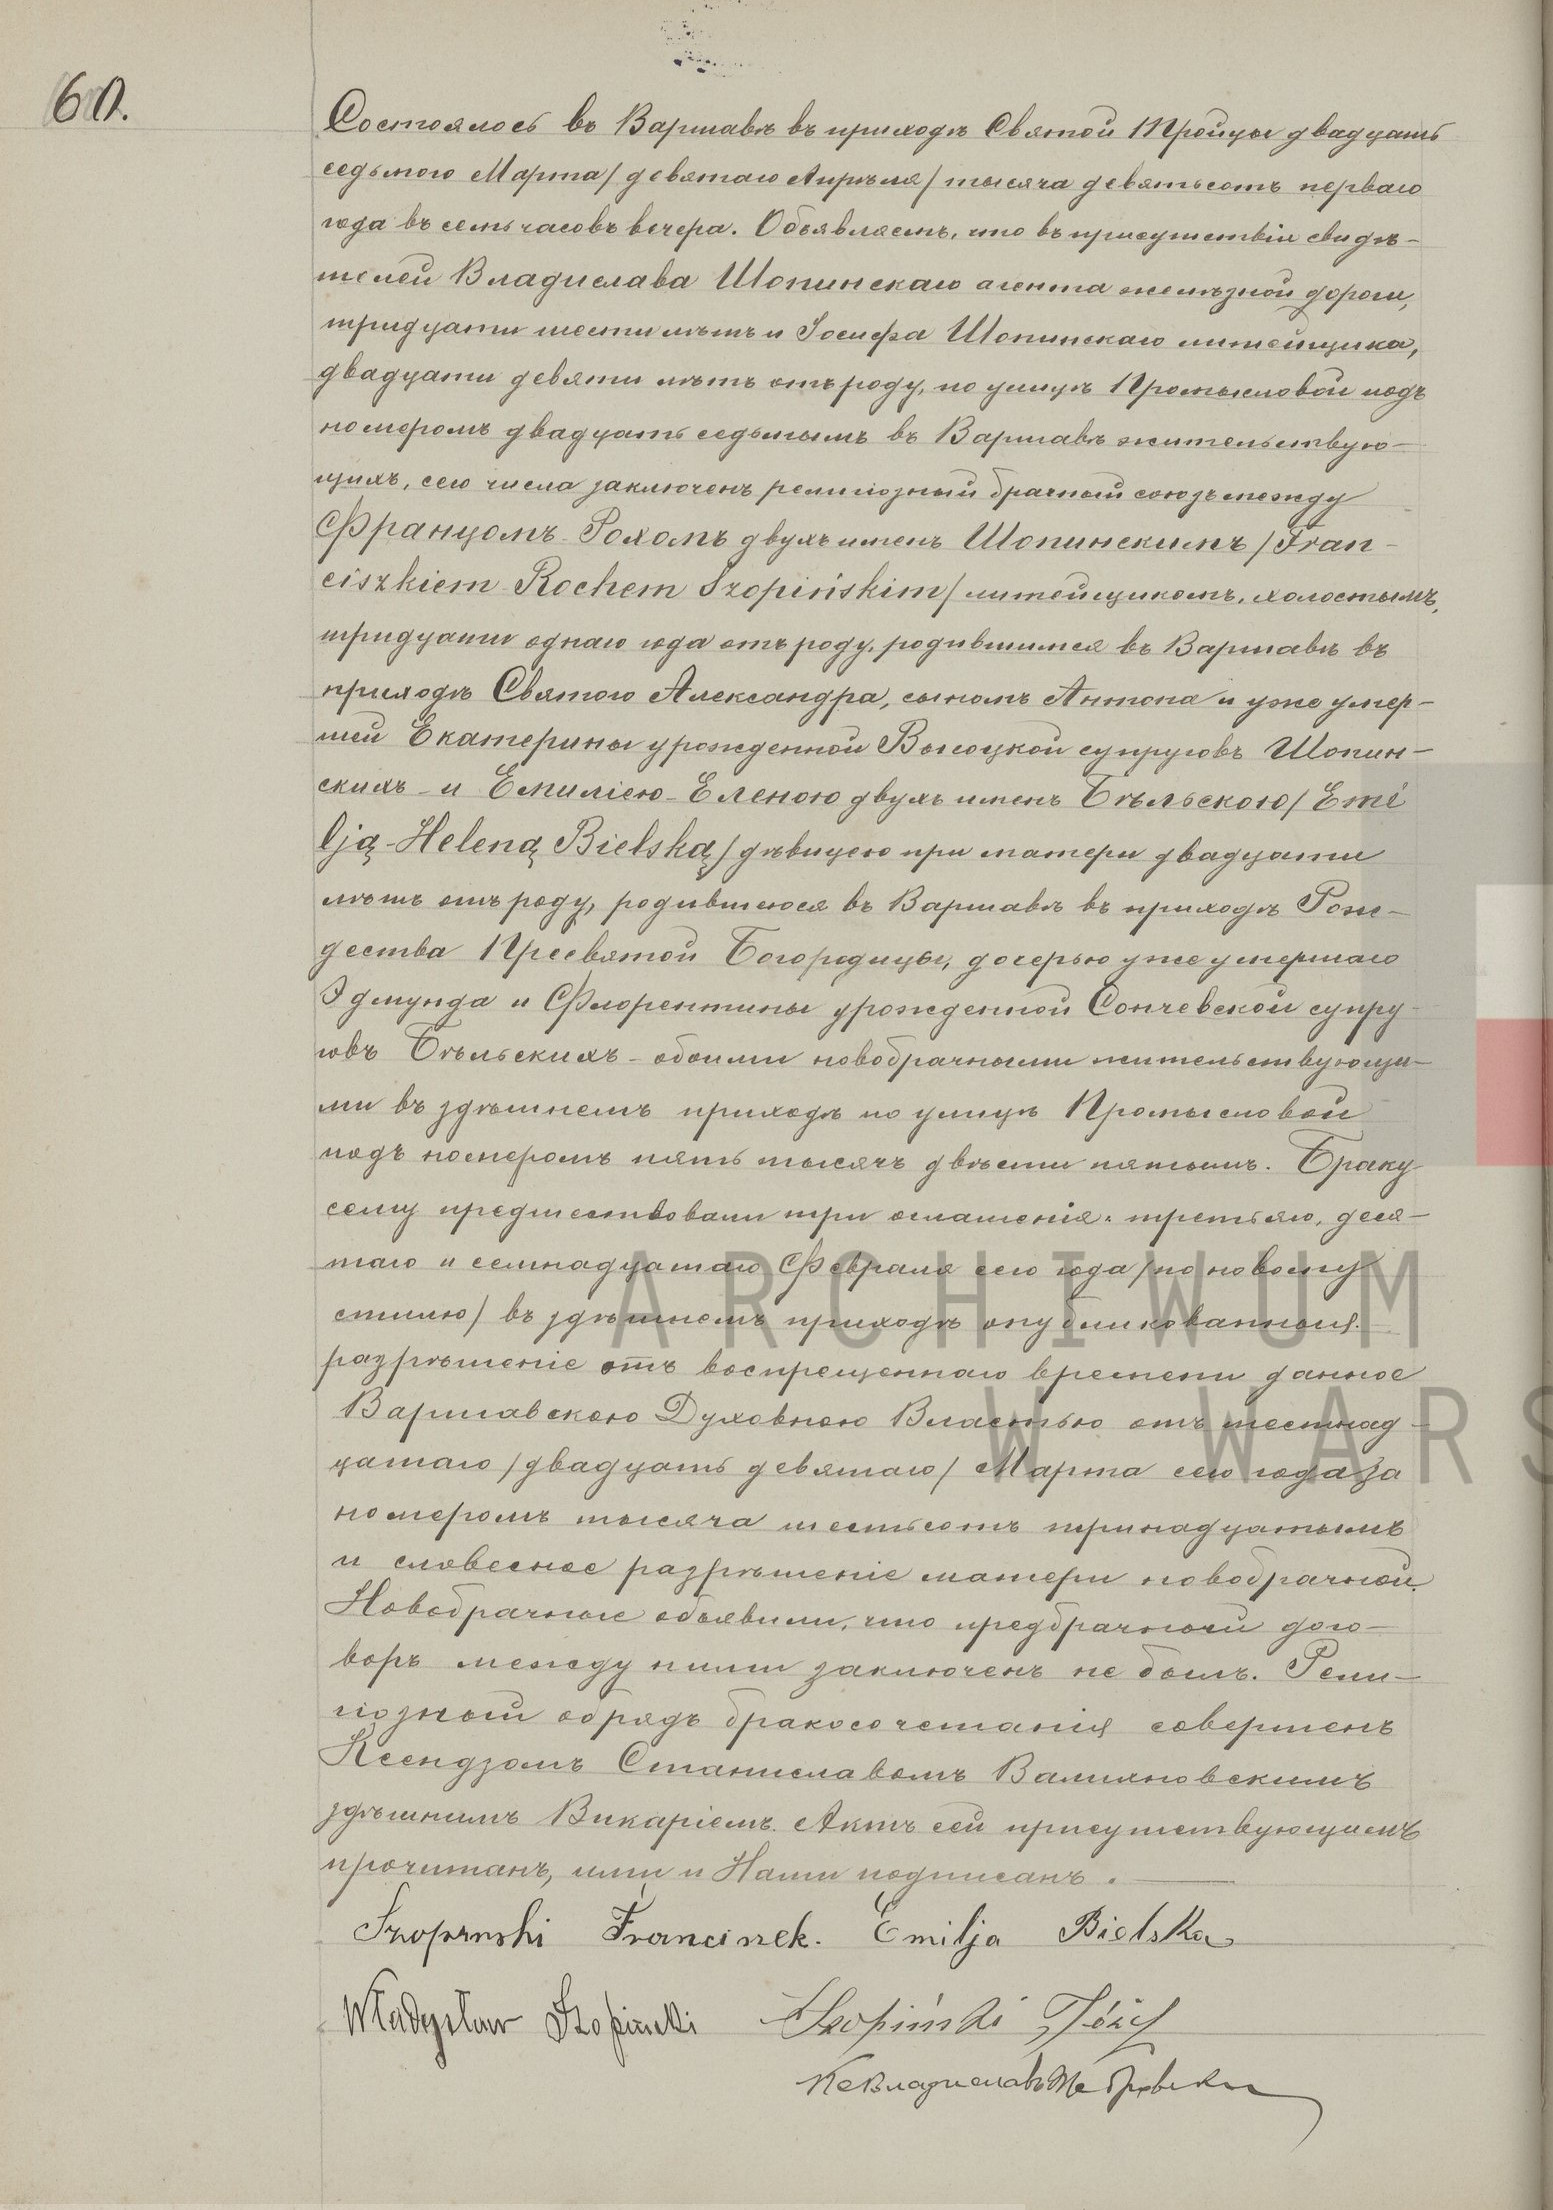 60.
Состоялось въ Варшавѣ въ приходѣ Святой Тройцы двадцать
седьмого Марта / девятаго Апрѣля / тысяча девятьсотъ перваго
года въ семь часовъ вечера. Объявляемъ, что въ присутствіи свидѣ-
телей Владислава Шопинскаго агента желѣзной дороги,
тридцати шести лѣтъ и Іосифа Шопинскаго литейщика,
двадцати девяти лѣтъ отъ роду, по улицѣ Промысловой подъ
номеромъ двадцать седьмымъ въ Варшавѣ жительствую-
щихъ, сего числа заключенъ религіозный брачный союзъ между
Францомъ-Рохомъ двухъ именъ Шопинскимъ / Fran-
ciszkiem Rochem Szopińskim / литейщикомъ, холостымъ,
тридцати однаго года отъ роду, родившимся въ Варшавѣ въ
приходѣ Святого Александра, сыномъ Антона и уже умер-
шей Екатерины урожденной Высоцкой супруговъ Шопин-
скихъ - и Емиліею-Еленою двухъ именъ Бѣльскою / Emi
lją-Heleną Bielską / дѣвицею при матери двадцати
лѣтъ отъ роду, родившеюся въ Варшавѣ въ приходѣ Рож-
дества Пресвятой Богородицы, дочерью уже умершаго
Эдмунда и Флорентины урожденной Сончевской супру-
говъ Бѣльскихъ - обоими новобрачными жительствующи-
ми въ здѣшнемъ приходѣ по улицѣ Промысловой
подъ номеромъ пять тысячъ двѣсти пятымъ. Браку
сему предшествовали три оглашенія: третьяго, деся-
таго и семнадцатаго Февраля сего года / по новому
стилю / въ здѣшнемъ приходѣ опубликованныя.
разрѣшеніе отъ воспрещеннаго времени данное
Варшавскою Духовною Властью отъ шестнад-
цатаго / двадцать девятаго / Марта сего года за
номеромъ тысяча шестьсотъ тринадцатымъ
и словесное разрѣшеніе матери новобрачной.
Новобрачные объявили, что предбрачный дого-
воръ между ними заключенъ не былъ. Рели-
гіозный обрядъ бракосочетанія совершенъ
Ксендзомъ Станиславомъ Валияновскимъ
здѣшнимъ Викаріемъ. Актъ сей присутствующимъ
прочитанъ, ими и Нами подписанъ.
Szopinski Franciszek. Emilja Bielska
Władysław Szopinski Szopiński Józef
Кс Владиславъ
ARCHIWUM
W WARS